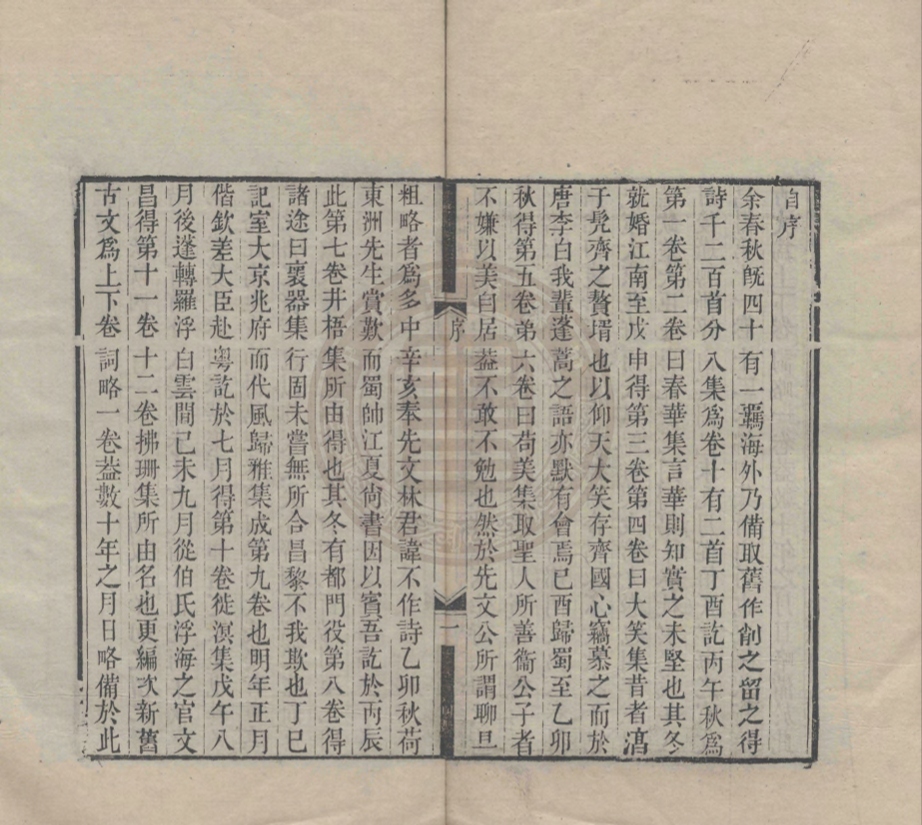 自序
余春秋旣四十有一羈海外乃備取舊作削之留之得
詩千二百首分八集爲卷十有二首丁酉訖丙午秋爲
第一卷第二卷曰春華集言華則知實之未堅也其冬
就婚江南至戊申得第三卷第四卷曰大笑集昔者滈
于髡齊之贅壻也以仰天大笑存齊國心竊慕之而於
唐李白我輩蓬蒿之語亦默有會焉己酉歸蜀至乙卯
秋得第五卷弟六卷曰苟美集取聖人所善衞公子者
不嫌以美自居葢不敢不勉也然於先文公所謂聊且
序
一
粗略者爲多中辛亥奉先文林君諱不作詩乙卯秋荷
東洲先生賞歎而蜀帥江夏尙書因以賓吾訖於丙辰
此第七卷井梧集所由得也其冬有都門役第八卷得
諸途曰裛器集行固未嘗無所合昌黎不我欺也丁巳
記室大京兆府而代風歸雅集成第九卷也明年正月
偕欽差大臣赴粵訖於七月得第十卷徙溟集戊午八
月後蓬轉羅浮白雲閒己未九月從伯氏浮海之官文
昌得第十一卷十二卷拂珊集所由名也更編次新舊
古文爲上下卷詞略一卷葢數十年之月日略備於此